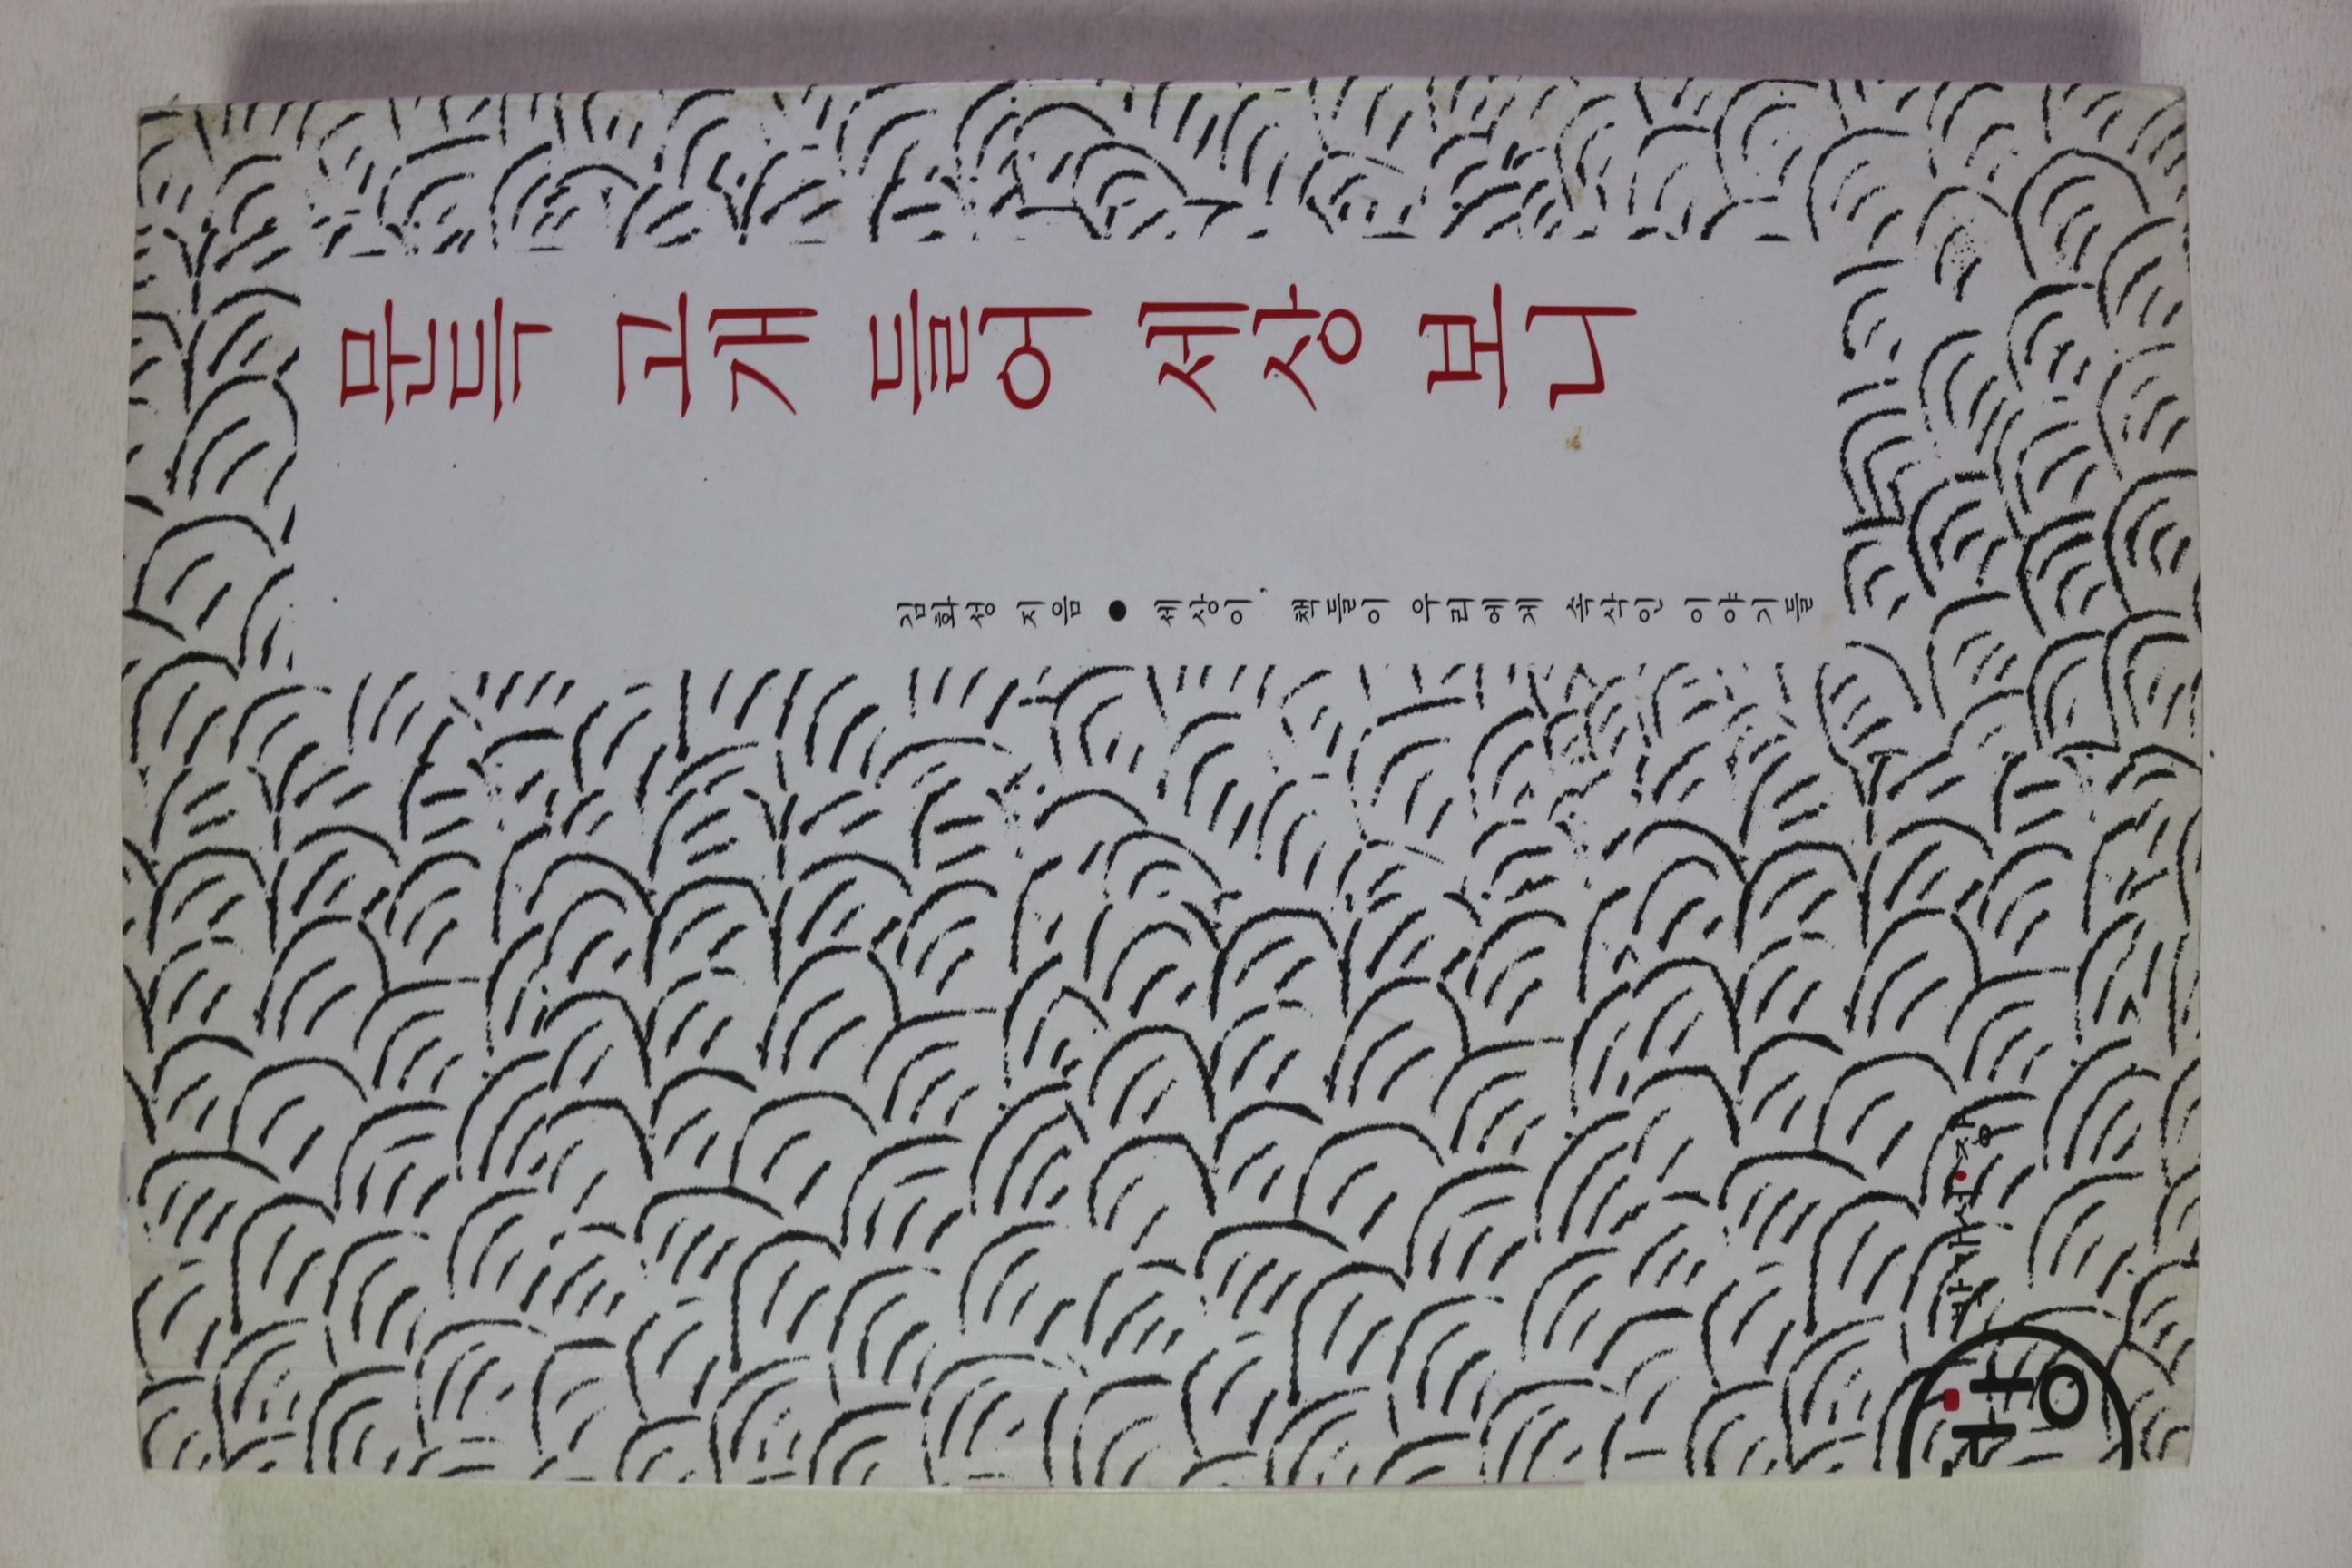 문득 고개 들어 세상 보니
김화성 지음 ● 세상이, 책들이 우리에게 속삭인 이야기들